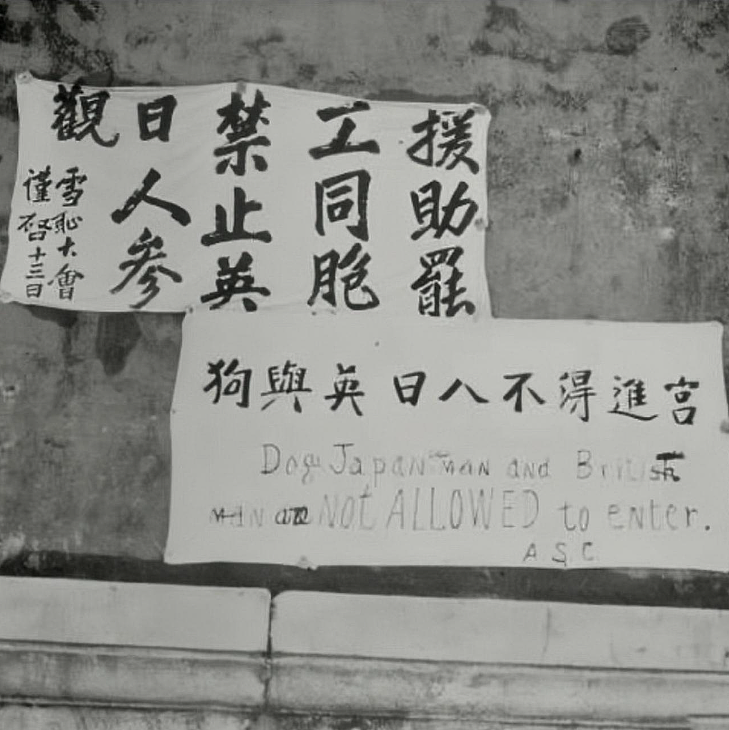 援助罷
工同胞
禁止英
日人參
觀
雪恥大會
謹啓十三日
狗與英日人不得進宮
Dog Japan man and British
man are NOt ALLOWED to enter.
A S C